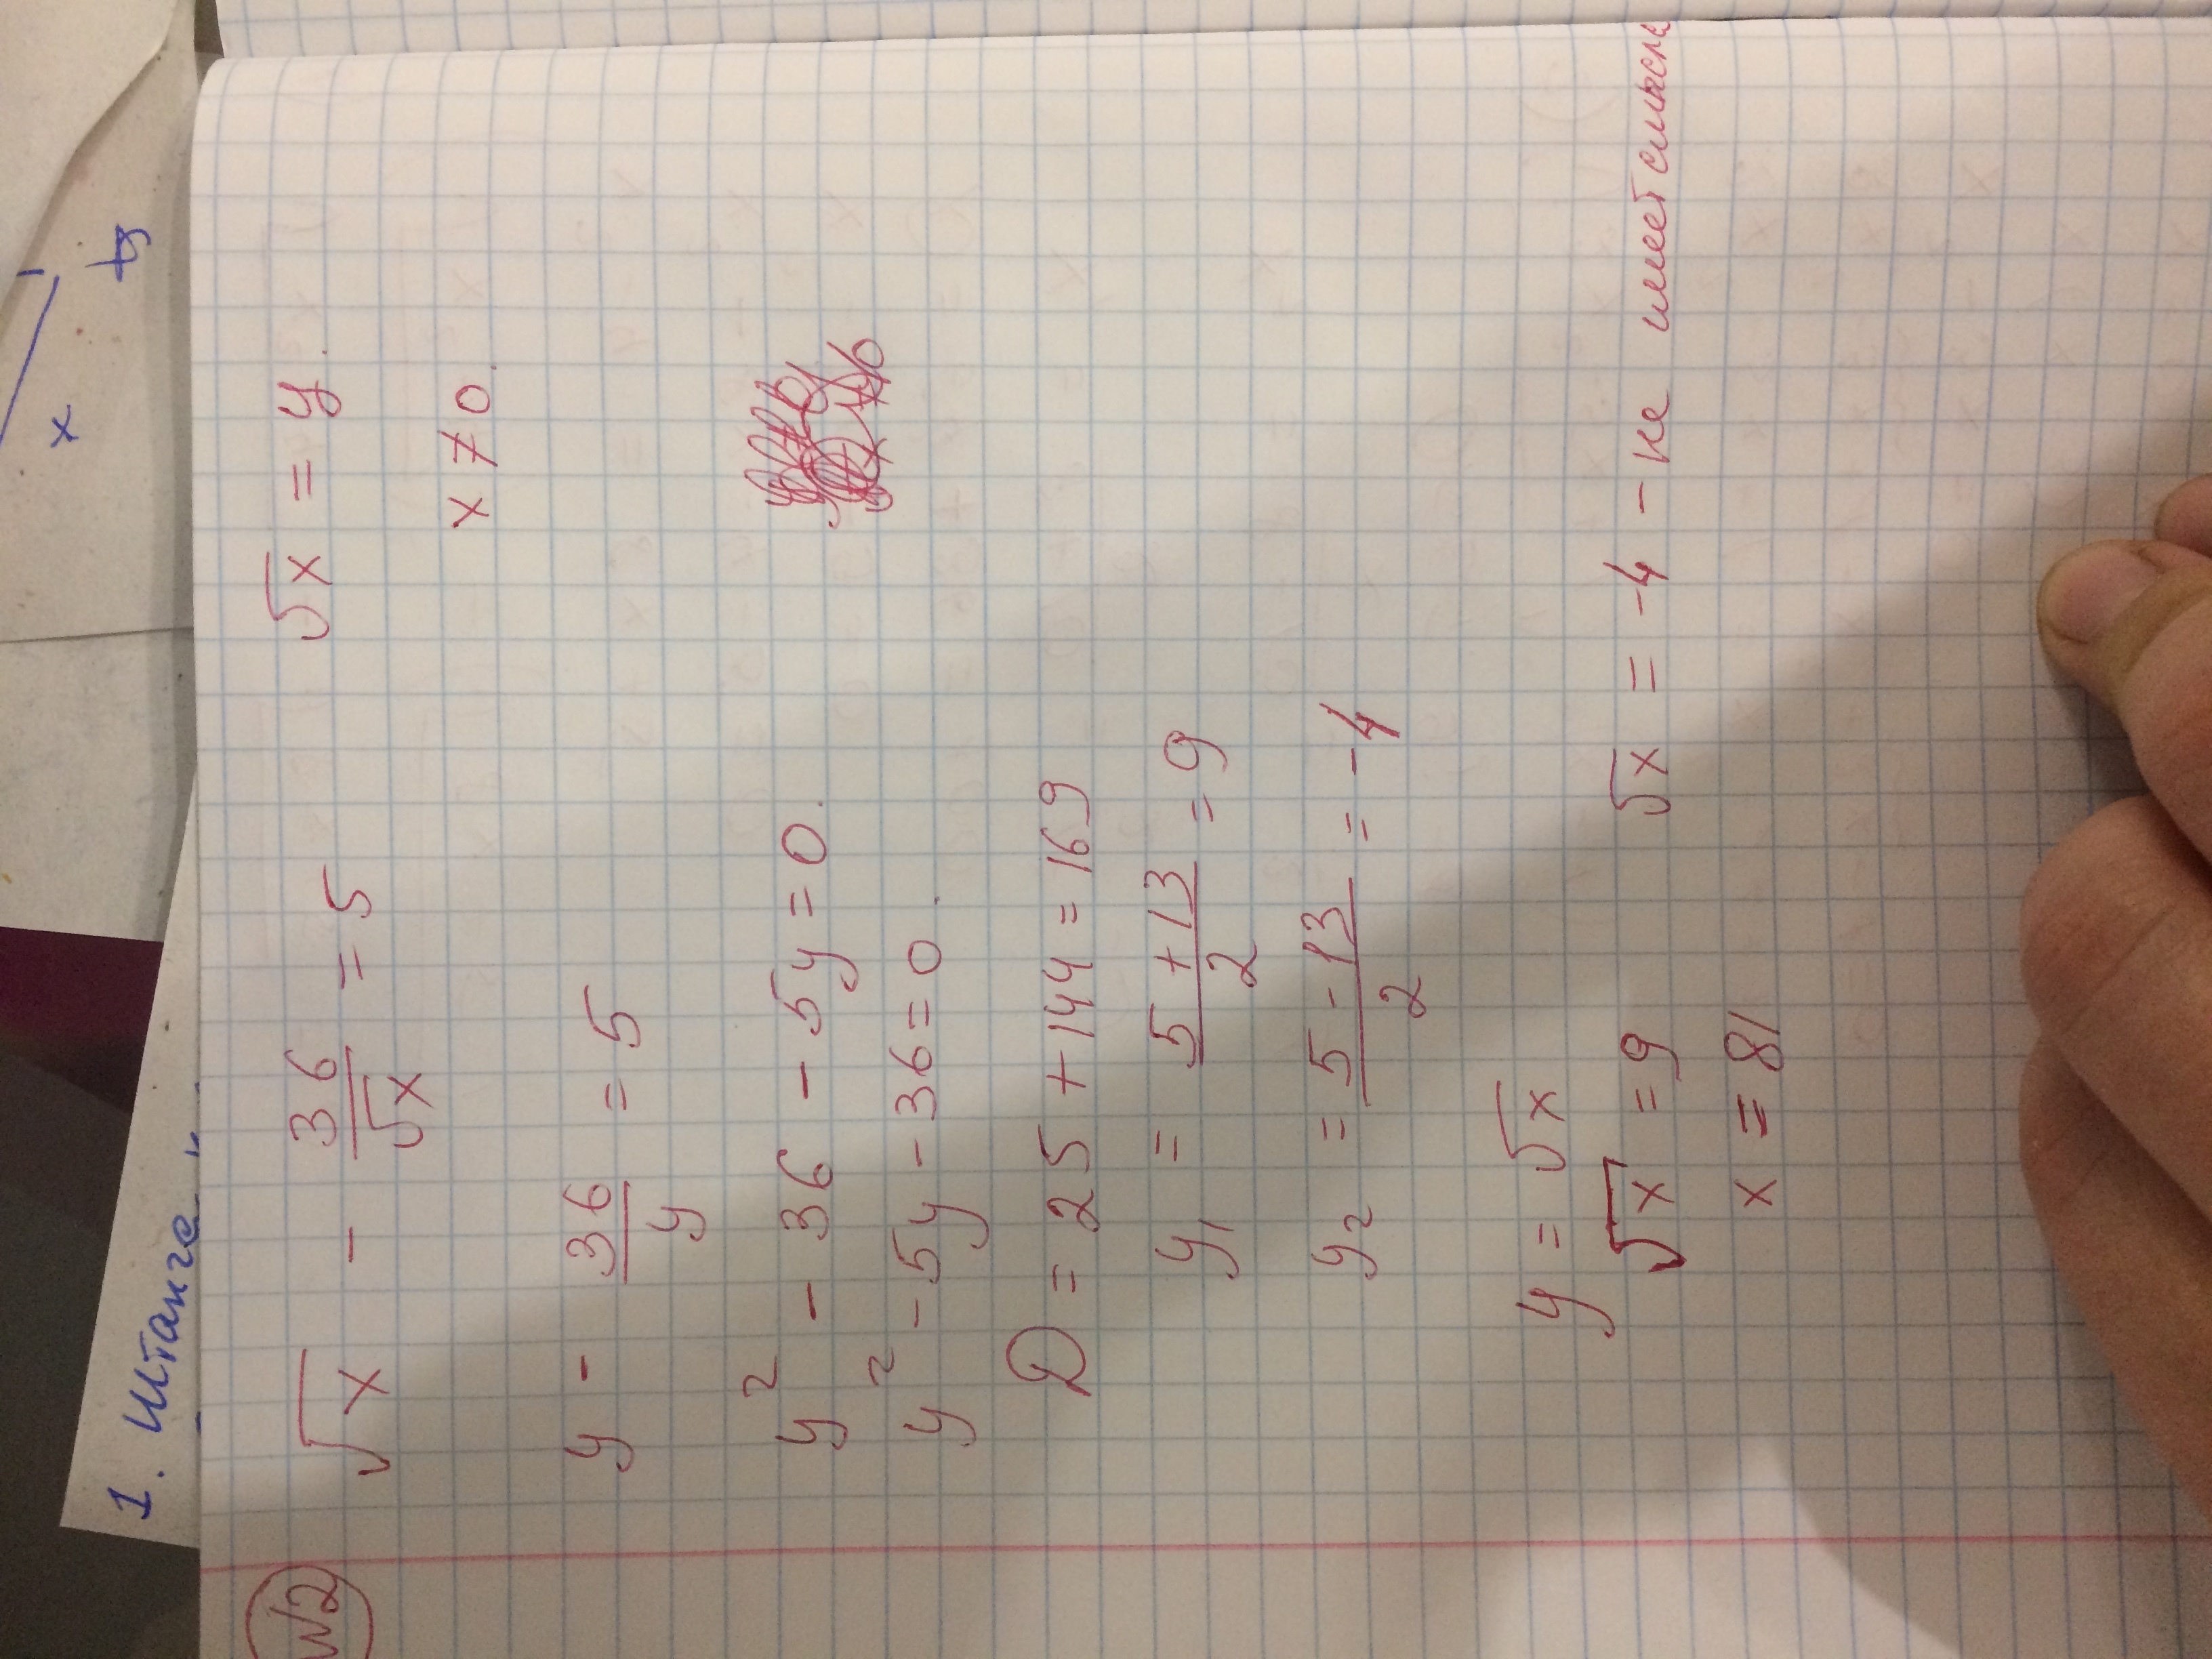 1. Штанге
x
ty
№2
√x - 36/√x = 5 √x = y.
x ≠ 0.
y - 36/y = 5
y² - 36 - 5y = 0.
y² - 5y - 36 = 0.
D = 25 + 144 = 169
y₁ = (5 + 13)/2 = 9
y₂ = (5 - 13)/2 = -4
y = √x
√x = 9 √x = -4 - не имеет смысла
x = 81